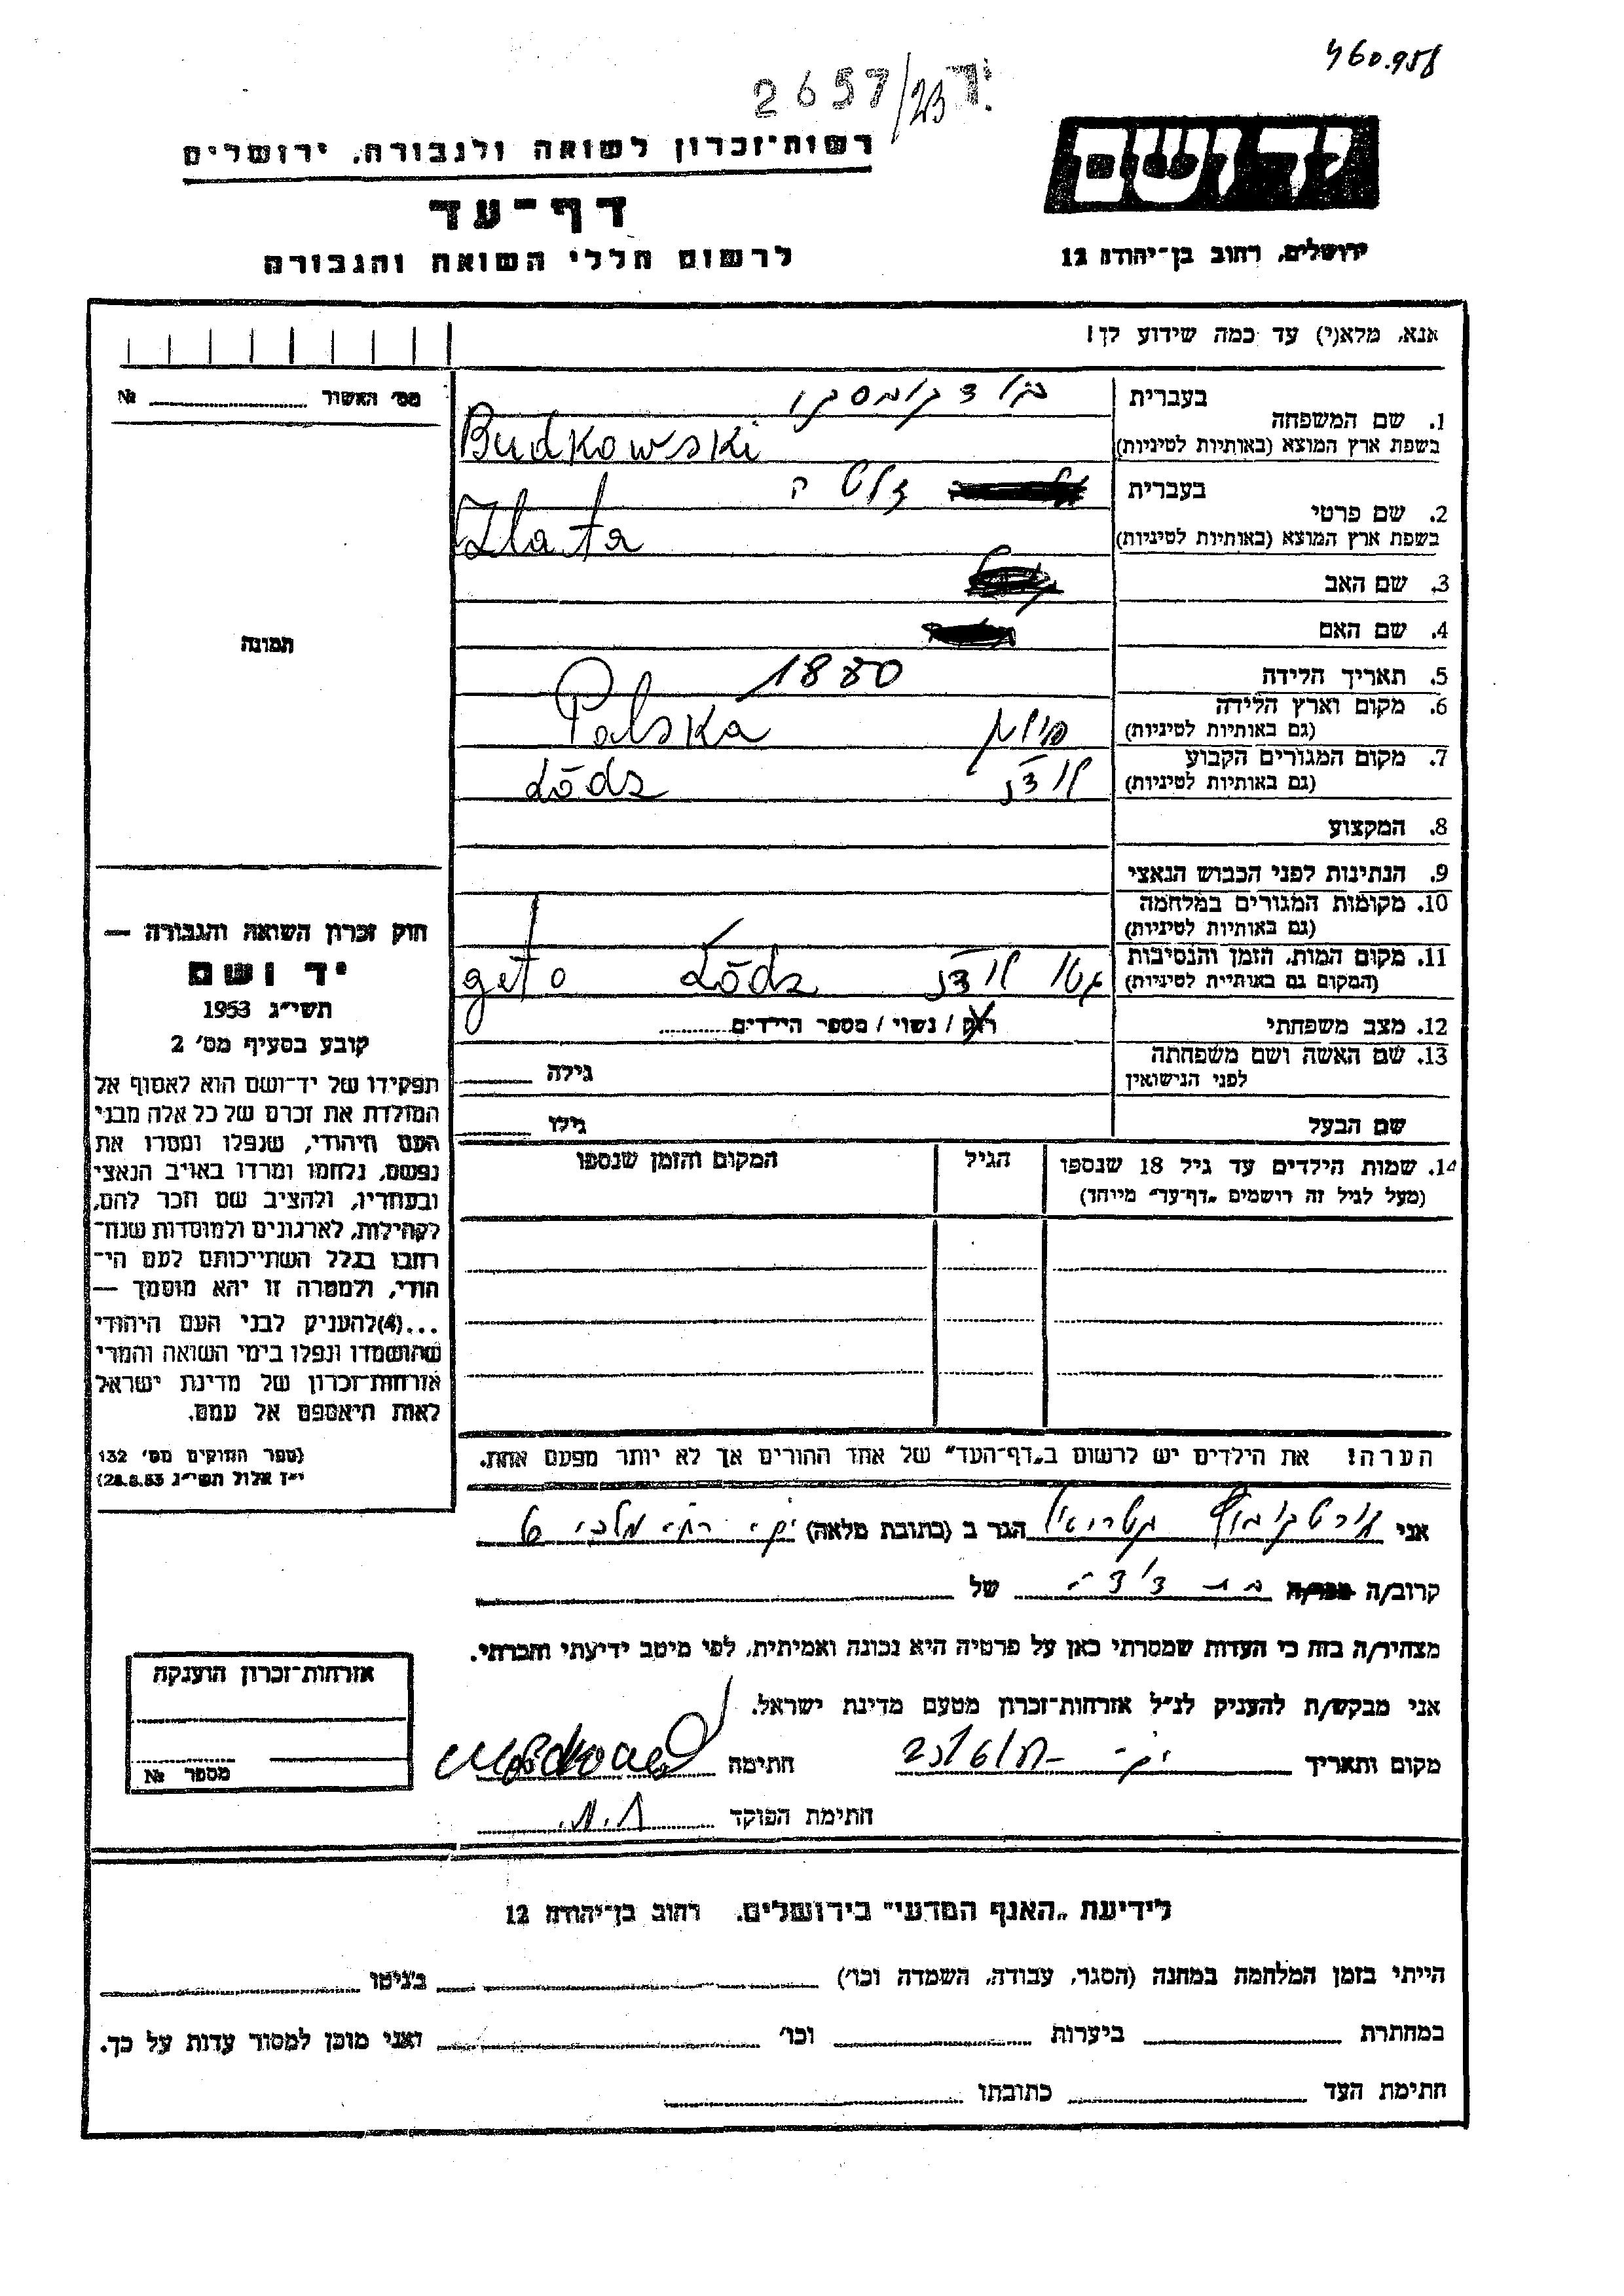 460.958
2657/23 ד'
יד ושם
ירושלים, רחוב בן־יהודה 12
רשות־זכרון לשואה ולגבורה, ירושלים
דף־עד
לרשום חללי השואה והגבורה
אנא, מלא(י) עד כמה שידוע לך!
מס' האשור № 
תמונה
1. שם המשפחה
בעברית בודקובסקי
בשפת ארץ המוצא (באותיות לטיניות) Budkowski
2. שם פרטי
בעברית זלטה
בשפת ארץ המוצא (באותיות לטיניות) Zlata
3. שם האב
4. שם האם
5. תאריך הלידה 1880
6. מקום וארץ הלידה
(גם באותיות לטיניות) פולין Polska
7. מקום המגורים הקבוע
(גם באותיות לטיניות) לודז Łódz
8. המקצוע
9. הנתינות לפני הכבוש הנאצי
10. מקומות המגורים במלחמה
(גם באותיות לטיניות)
11. מקום המות, הזמן והנסיבות
(המקום גם באותיות לטיניות) גטו לודז Łódz geto
12. מצב משפחתי רווק / נשוי / מספר הילדים
13. שם האשה ושם משפחתה
לפני הנישואין גילה
שם הבעל גילו
14. שמות הילדים עד גיל 18 שנספו
(מעל לגיל זה רושמים „דף־עד" מייחד)
הגיל
המקום והזמן שנספו
הערה! את הילדים יש לרשום ב„דף־העד" של אחד ההורים אך לא יותר מפעם אחת.
חוק זכרון השואה והגבורה —
יד ושם
תשי"ג 1953
קובע בסעיף מס' 2
תפקידו של יד־ושם הוא לאסוף אל
המולדת את זכרם של כל אלה מבני
העם היהודי, שנפלו ומסרו את
נפשם, נלחמו ומרדו באויב הנאצי
ובעוזריו, ולהציב שם וזכר להם,
לקהילות, לארגונים ולמוסדות שנח־
רבו בגלל השתייכותם לעם הי־
הודי, ולמטרה זו יהא מוסמך —
...(4)להעניק לבני העם היהודי
שהושמדו ונפלו בימי השואה והמרי
אזרחות־זכרון של מדינת ישראל
לאות היאספם אל עמם.
(ספר החוקים מס' 132
י"ז אלול תשי"ג 28.8.53)
אני הגר ב (כתובת מלאה)
קרוב/ה מכר/ה בת דודה של
מצהיר/ה בזה כי העדות שמסרתי כאן על פרטיה היא נכונה ואמיתית, לפי מיטב ידיעתי והכרתי.
אני מבקש/ת להעניק לנ"ל אזרחות־זכרון מטעם מדינת ישראל.
מקום ותאריך חתימה
חתימת הפוקד
אזרחות־זכרון הוענקה
מספר №
לידיעת „האגף המדעי" בירושלים, רחוב בן־יהודה 12
הייתי בזמן המלחמה במחנה (הסגר, עבודה, השמדה וכו') בגיטו
במחתרת ביערות וכו' ואני מוכן למסור עדות על כך.
חתימת העד כתובתו